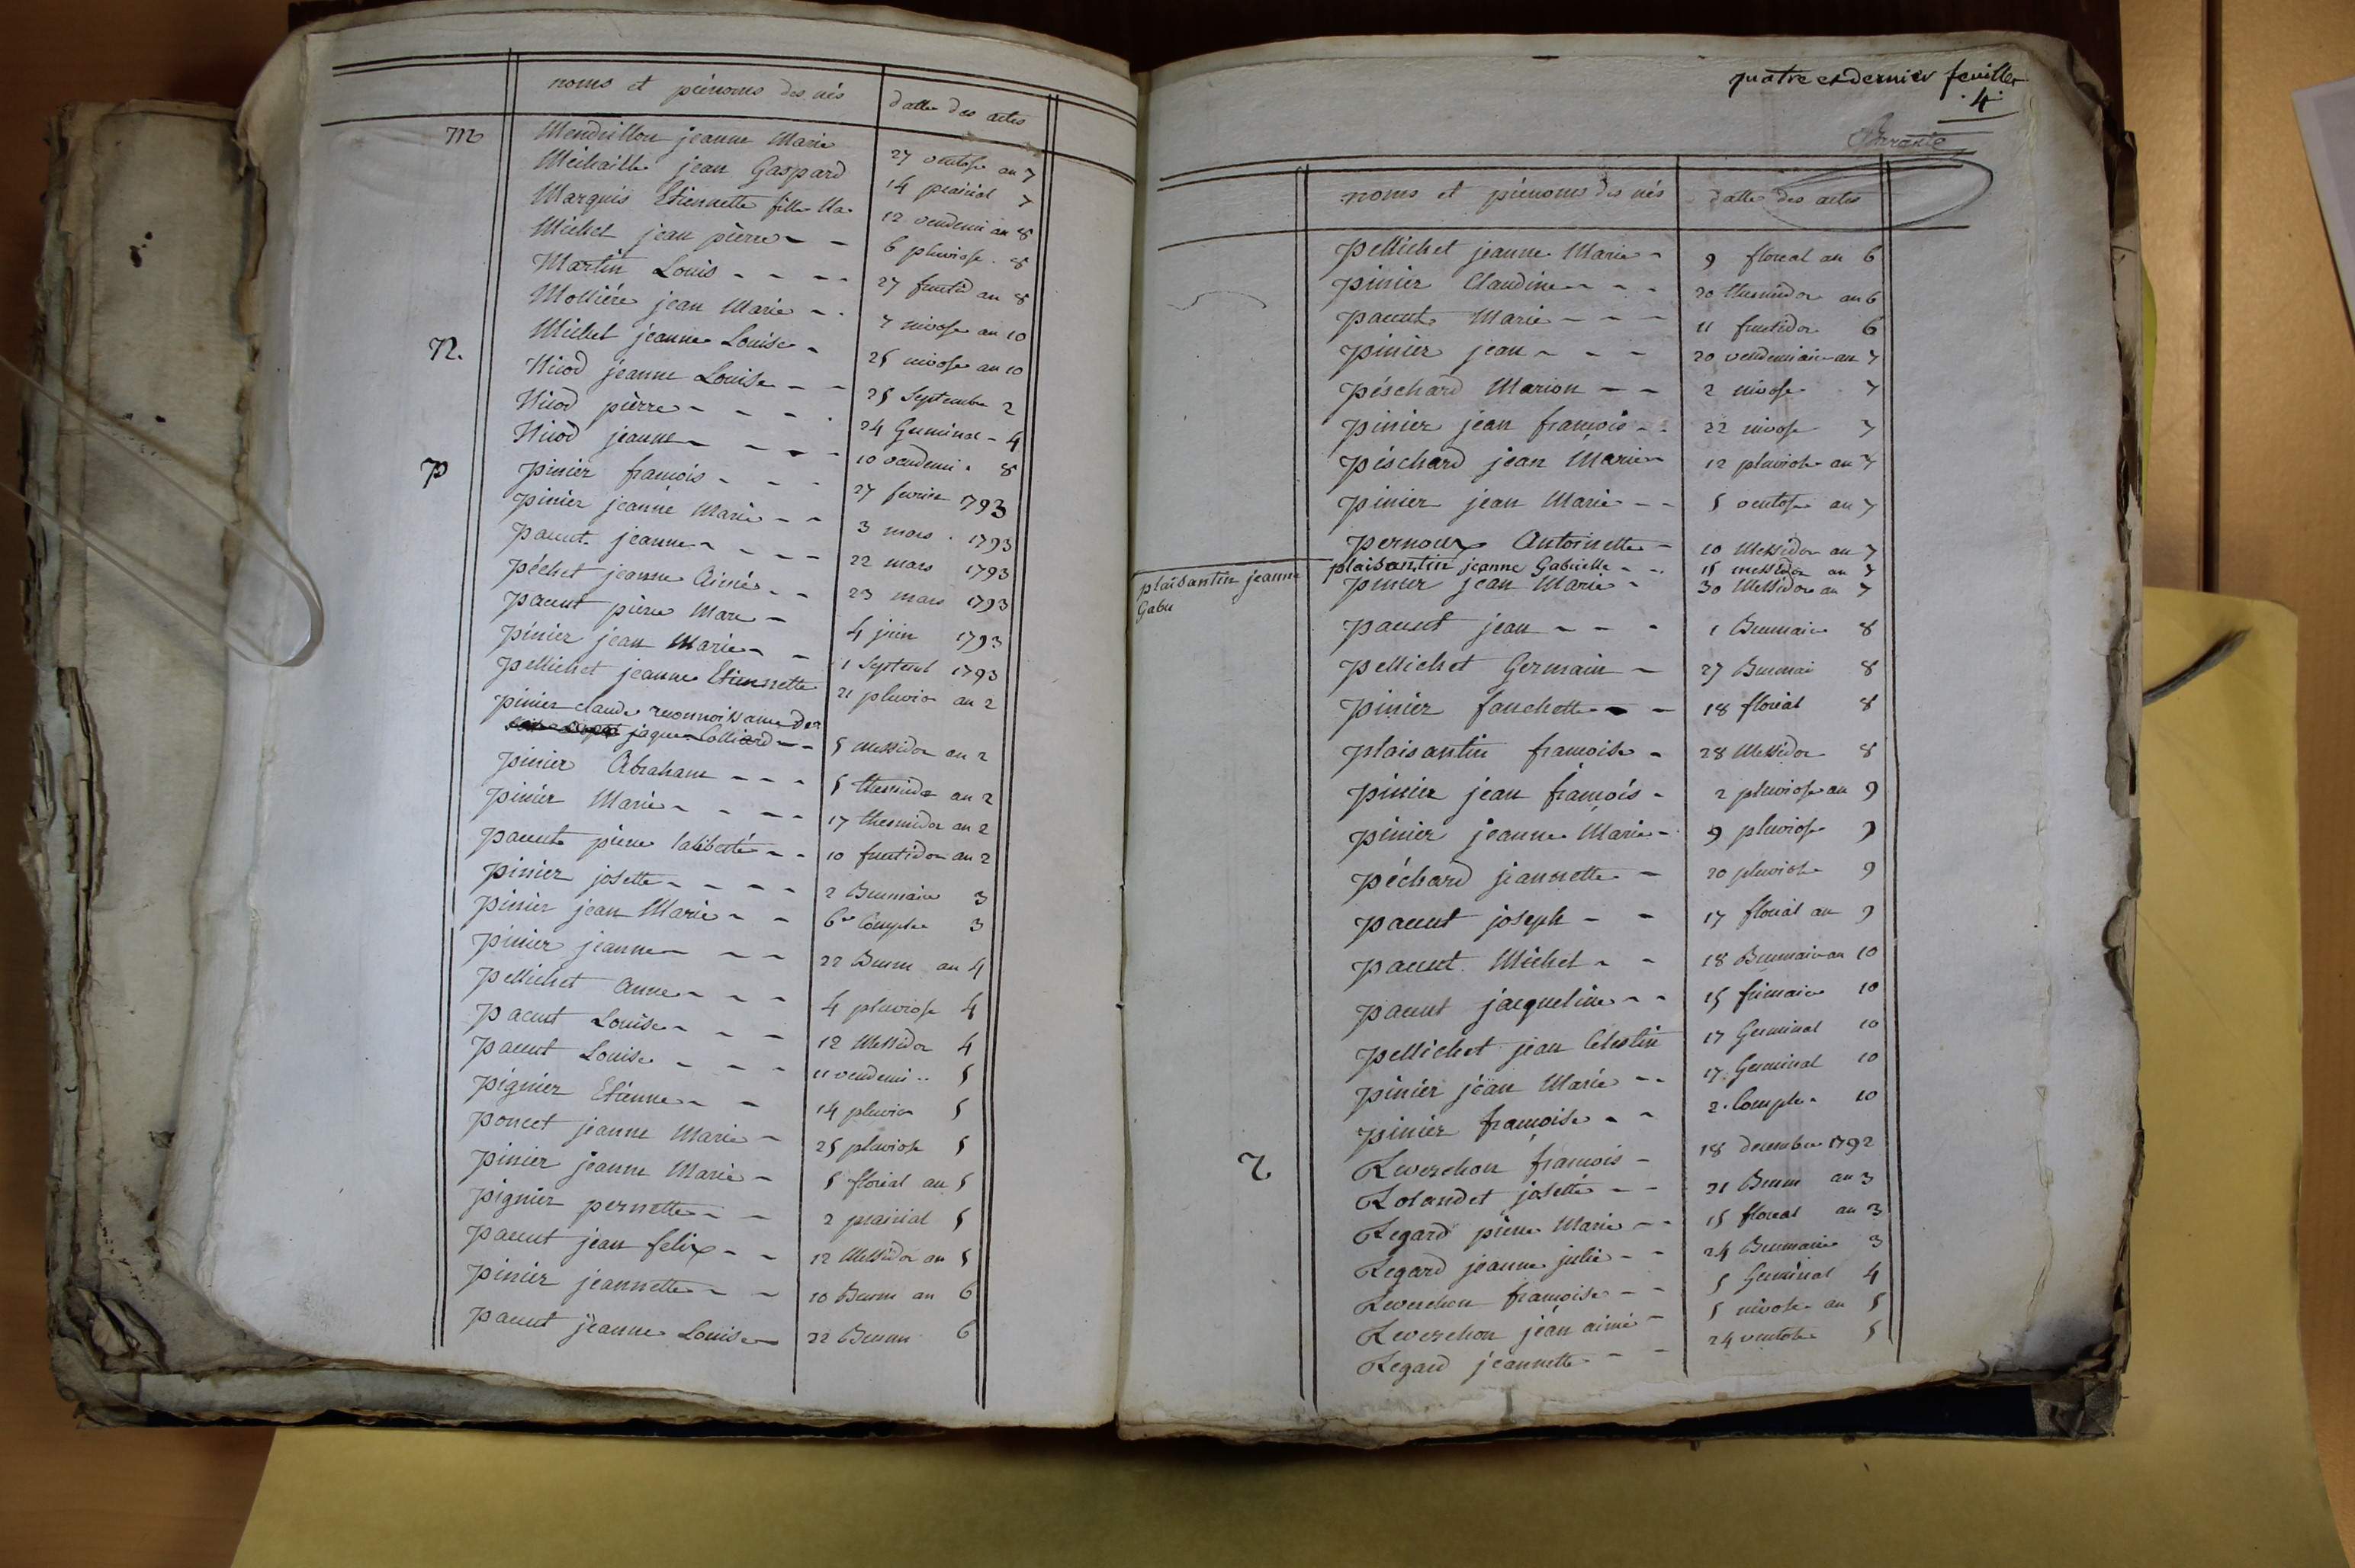 noms et prénoms des nés datte des actes
M Mendrillon jeanne Marie 27 ventose an 7
Michaille jean Gaspard 14 prairial 7
Marquis Etiennette fille 12 vendemi an 8
Michet jean pierre 6 pluviose 8
Martin Louis 27 fructid an 8
Mollière jean Marie 7 nivose an 10
Michet jeanne Louise 25 nivose an 10
N. Nicod jeanne Louise 25 Septembre 2
Nicod pierre 24 Germinal 4
Nicod jeanne 10 vendemi 8
P pinier francois 27 fevrier 1793
pinier jeanne Marie 3 mars 1793
pacut jeanne 22 mars 1793
péchet jeanne Aimée 23 mars 1793
pacut pierre Marc 4 juin 1793
pinier jean Marie 1 Septemb 1793
pellichet jeanne Etiennette 21 pluvio an 2
pinier claude reconnoissance de
jaque Colliard 5 messidor an 2
pinier Abraham 5 thermidor an 2
pinier Marie 17 thermidor an 2
pacut pierre laliberté 10 fructidor an 2
pinier josette 2 Brumaire 3
pinier jean Marie 6e Comple 3
pinier jeanne 22 Brum an 4
pellichet Anne 4 pluviose 4
pacut Louise 12 Messidor 4
pacut Louise 11 vendemi 5
pignier Etienne 14 pluvio 5
poncet jeanne Marie 25 pluviose 5
pinier jeanne Marie 5 floréal an 5
pignier pernette 2 prairial 5
pacut jean felix 12 Messidor an 5
pinier jeannette 10 Brum an 6
pacut jeanne Louise 22 Brum 6
quatre et dernier feuillet
4
noms et prénoms des nés datte des actes
pellichet jeanne Marie 9 floreal an 6
pinier Claudine 20 thermidor an 6
pacut Marie 11 fructidor 6
pinier jean 20 vendemiaire an 7
péschard Marion 2 nivose 7
pinier jean francois 22 nivose 7
péschard jean Marie 12 pluviose an 7
pinier jean Marie 5 ventose an 7
pernoux Antoinette 10 Messidor an 7
plaisantin jeanne Gabrielle 15 messidor an 7
plaisantin jeanne
Gabri
pinier jean Marie 30 Messidor an 7
pacut jean 1 Brumaire 8
pellichet Germain 27 Brumai 8
pinier fanchette 18 floréal 8
plaisantin francoise 28 Messidor 8
pinier jean francois 2 pluviose an 9
pinier jeanne Marie 9 pluviose 9
péchard jeannette 20 pluviose 9
pacut joseph 17 floréal an 9
pacut Michel 18 Brumaire an 10
pacut jacqueline 15 frimaire 10
pellichet jean Célestin 17 Germinal 10
pinier jean Marie 17 Germinal 10
pinier francoise 2 Comple 10
R Reverchon francois 18 decembre 1792
Rolandet josette 21 Brum an 3
Regard pierre Marie 15 floreal an 3
Regard jeanne julie 24 Brumaire 3
Reverchon francoise 5 Germinal 4
Reverchon jean aimé 5 nivose an 5
Regard jeannette 24 ventose 5